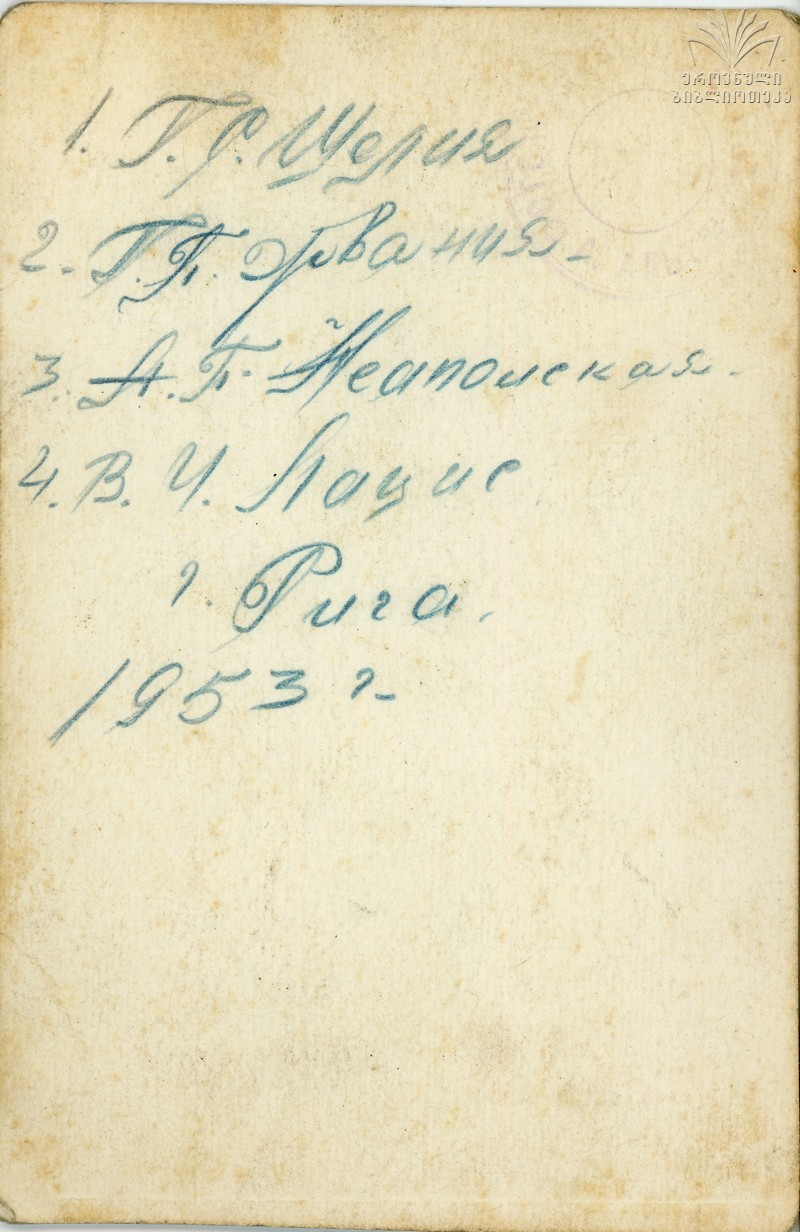 ეროვნული
ბიბლიოთეკა
1. Г. С. Щерия
2. Г. П.
3. А. П. Неаполская.
4. В. И. Лацис
г. Рига.
1953 г.